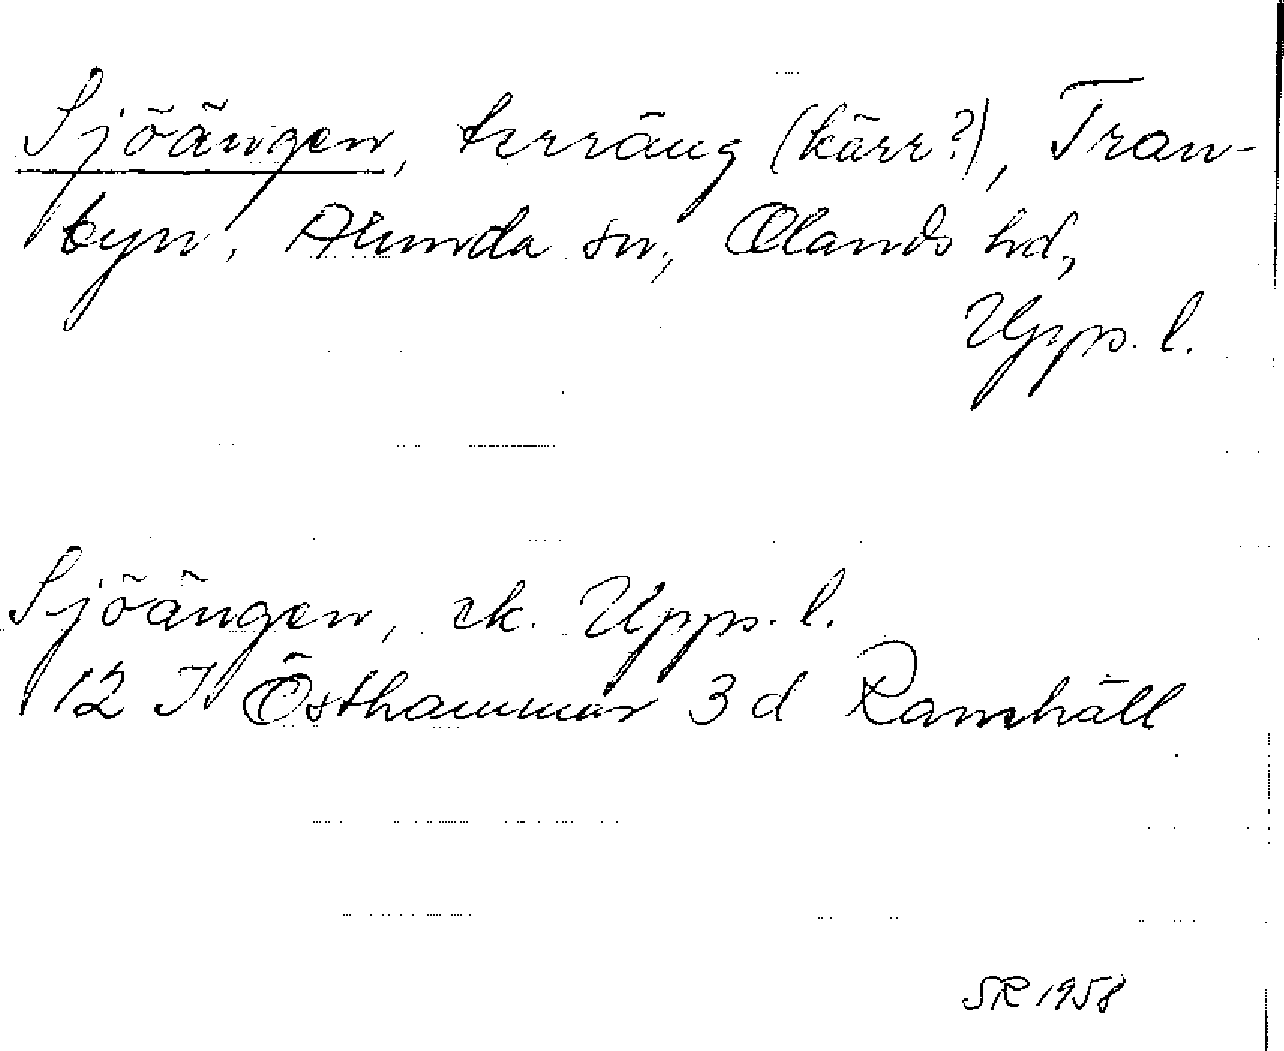 Sjöängen, terräng (kärr?), Tran-
byn, Alunda sn, Olands hd,
Upps. l.
Sjöängen, ek. Upps. l.
12 I Östhammar 3 d Ramhäll
SR 1958